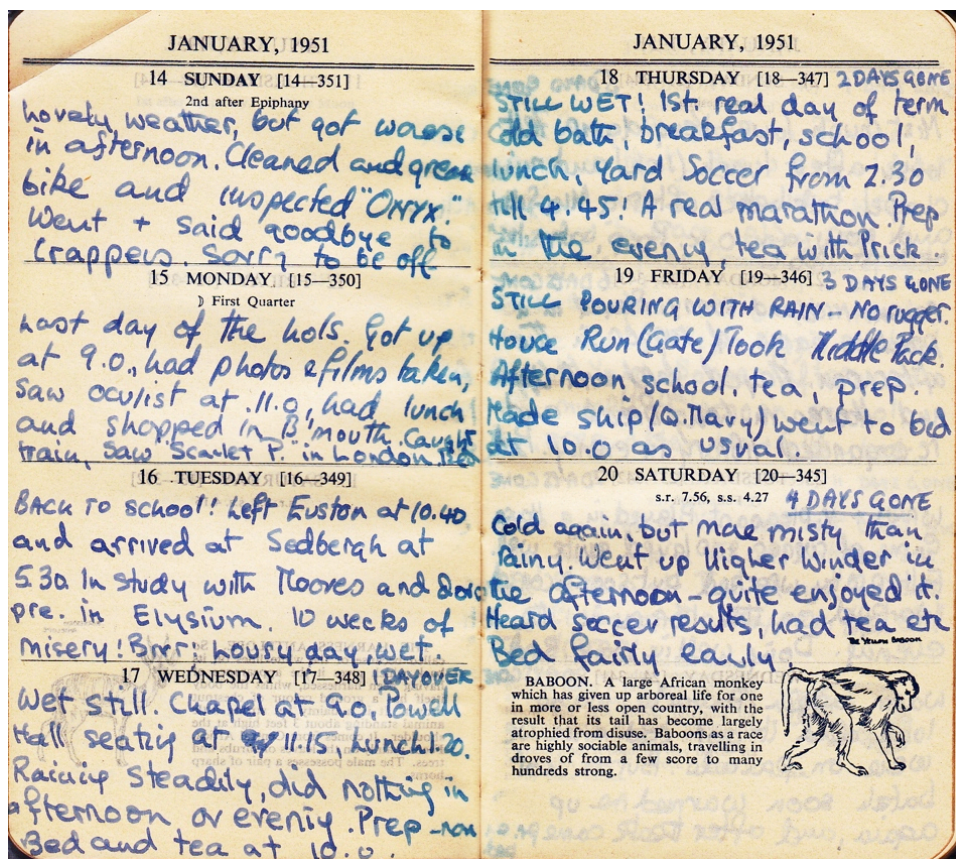 JANUARY, 1951
14 SUNDAY [14—351]
2nd after Epiphany
Lovely weather, but got worse
in afternoon. Cleaned and
bike and inspected "ONYX".
Went + said goodbye to
Crappers. Sorry to be off
15 MONDAY [15—350]
☽ First Quarter
Last day of the hols. Got up
at 9.0, had photos & films taken,
saw oculist at 11.0, had lunch
and shopped in B'mouth. Caught
train, saw "Scarlet P." in London.
16 TUESDAY [16—349]
BACK TO SCHOOL! Left Euston at 10.40
and arrived at Sedbergh at
5.30. In study with and
pre. in Elysium. 10 weeks of
misery! Brrr; lousy day, wet.
17 WEDNESDAY [17—348] 1 DAY OVER
Wet still. Chapel at 9.0, Powell
Hall seating at 11.15 Lunch 1.20.
Raining steadily, did nothing in
afternoon or evenig. Prep -
Bed and tea at 10.0.
JANUARY, 1951
18 THURSDAY [18—347] 2 DAYS GONE
STILL WET! 1st. real day of term
Cold bath, breakfast, school,
lunch. Yard Soccer from 2.30
till 4.45! A real marathon. Prep
in the evening, tea with Prick.
19 FRIDAY [19—346] 3 DAYS GONE
STILL POURING WITH RAIN – No rugger.
House Run (Gate) Took Middle Pack.
Afternoon school, tea, prep.
Made ship (Q. Mary) went to bed
at 10.0 as usual
20 SATURDAY [20—345]
s.r. 7.56, s.s. 4.27 4 DAYS GONE
Cold again, but more misty than
rainy. Went up Higher Winder in
the afternoon – quite enjoyed it.
Heard soccer results, had tea etc
Bed fairly early.
The Yellow Baboon
BABOON. A large African monkey
which has given up arboreal life for one
in more or less open country, with the
result that its tail has become largely
atrophied from disuse. Baboons as a race
are highly sociable animals, travelling in
droves of from a few score to many
hundreds strong.